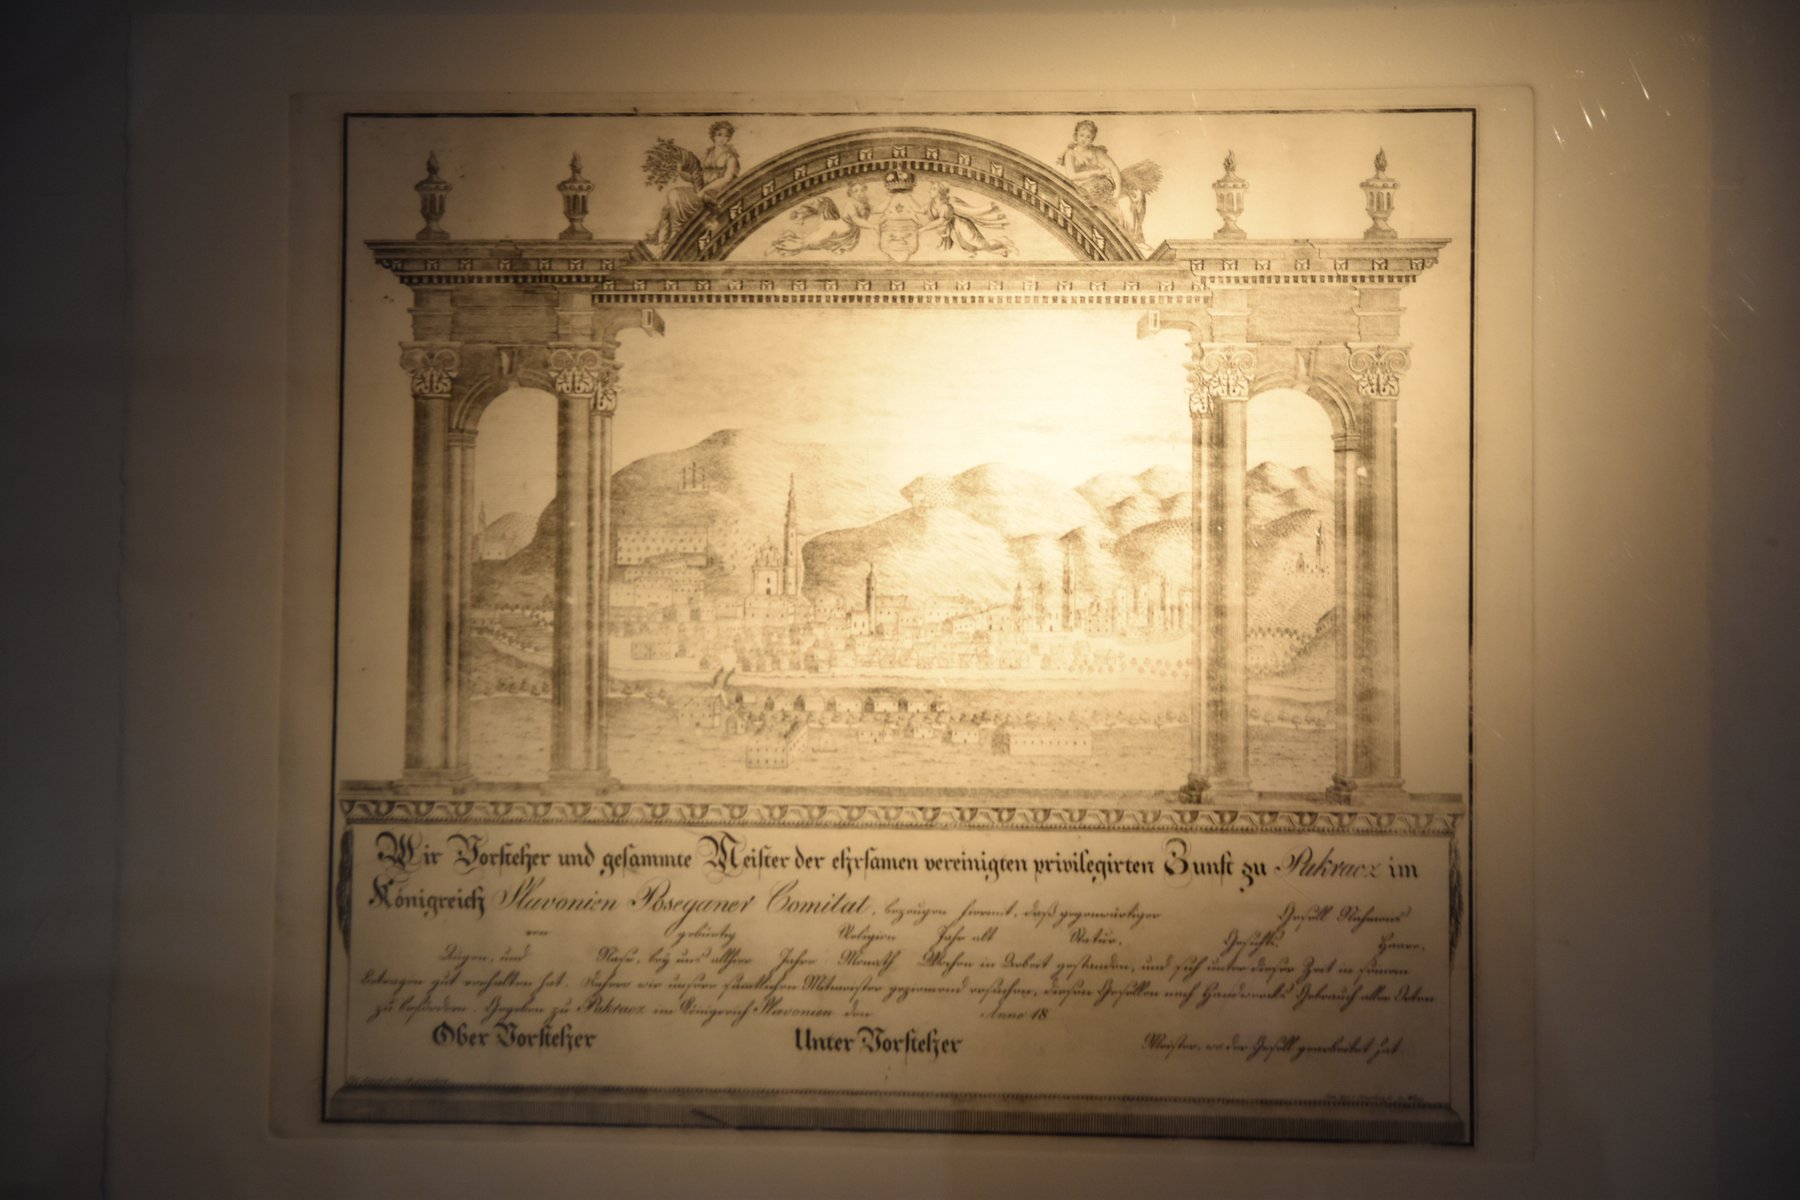 Wir Vorsteher und gesammte Meister der ehrsamen vereinigten privilegirten Zunft zu Pakracz im
Königreich Slavonien Poseganer Comitat, bezeugen hiermit, daß gegenwärtiger Gesell Nahmens
von gebürtig Religion Jahr alt Statur, Gesichts Haare,
Augen, und Nase, bey uns allhier Jahre Monath Wochen in Arbeit gestanden, und sich unter dieser Zeit in seinem
betragen gut verhalten hat. Dahero wir unsere sämtlichen Mitmeister geziemend ersuchen, diesen Gesellen nach Handwerks Gebrauch aller Orten
zu befördern. Gegeben zu Pakracz im Königreich Slavonien den Anno 18
Ober Vorsteher Unter Vorsteher Meister, wo der Gesell gearbeitet hat.